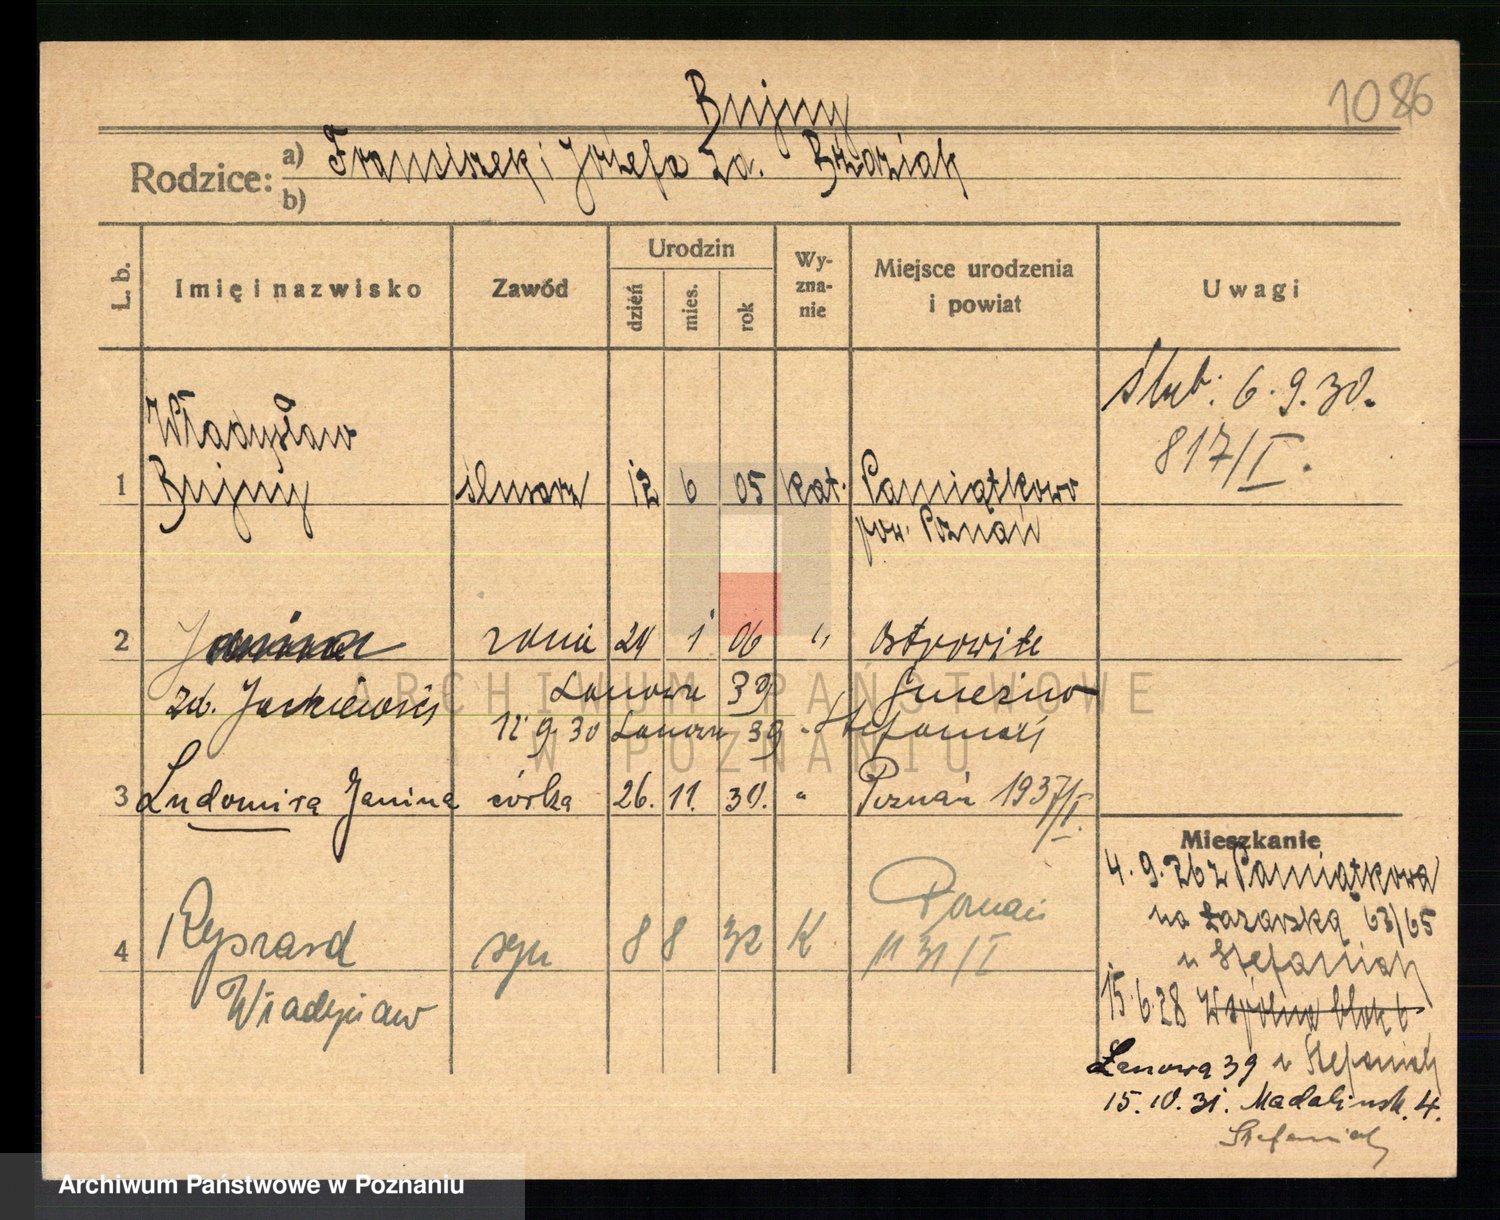 1086
Bujny
Rodzice: a) Franciszek i Józefa zd. Brzdziak
b)
L. b. Imię i nazwisko Zawód Urodzin dzień mies. rok Wy-zna-nie Miejsce urodzenia i powiat Uwagi
ślub: 6.9.30.
817/I.
Władysław
1 Bujny ślusarz 12 6 05 kat. Pamiątkowo
pow. Poznań
2 Janina żona 24 1 06 " Ostrowite
zd. Jackiewicz Łanowa 39 Gniezno
12 9 30 Łanowa 39 Stefaniak
3 Ludomira Janina córka 26. 11. 30. " Poznań 1937/I.
4 Ryszard syn 8 8 32 K Poznań
Władysław
Mieszkanie
4.9.26 z Pamiątkowa
na Łazarską 63/65
u Stefaniak
15.6.28 Wspólna blok 6
Łanowa 39 u Stefaniak
15.10.31. Madalińsk. 4.
Stefaniak
ARCHIWUM PAŃSTWOWE
W POZNANIU
Archiwum Państwowe w Poznaniu